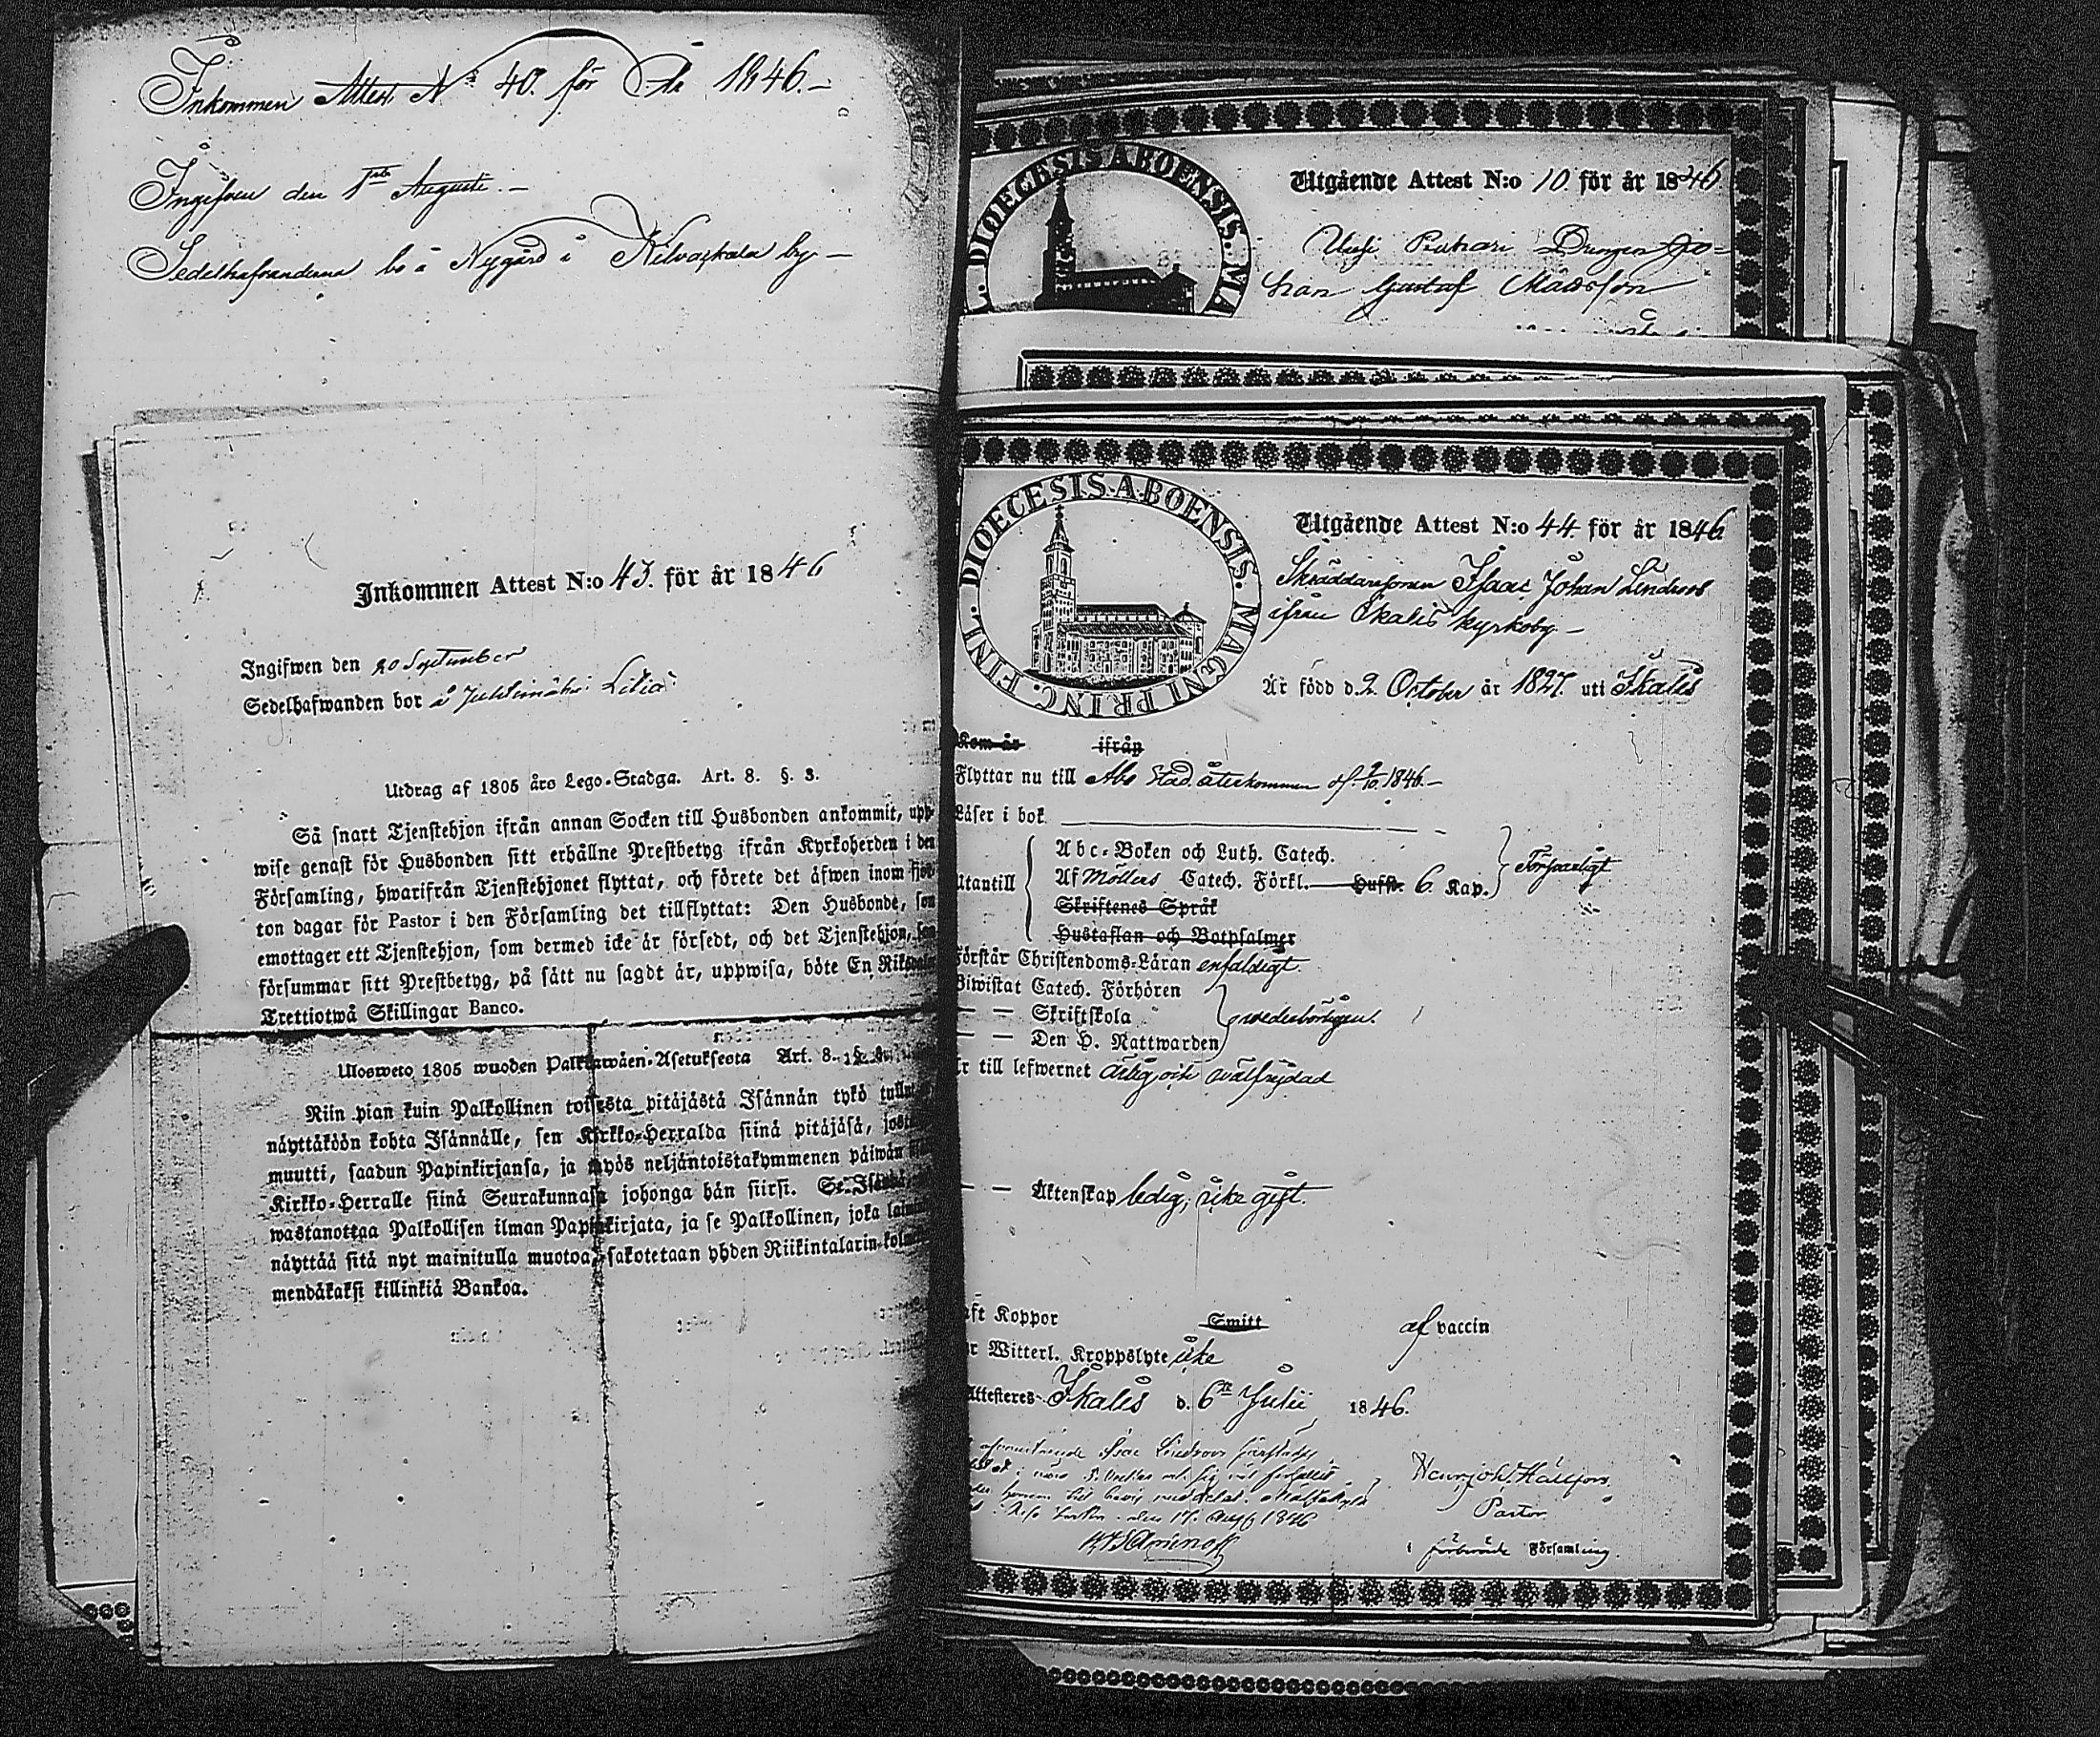 Inkommen Attest N:o 40. för År 1846.-
Ingifven den 1sta Augusti.-
Sedelhafvanderna bo å Nygård i Kilvaskala by-
Inkommen Attest N:o 43. för år 1846
Ingifwen den 20 September
Sedelhafwanden bor å
Utdrag af 1805 års Lego-Stadga. Art. 8. §. 3.
Så snart Tjenstehjon ifrån annan Socken till Husbonden ankommit, upp-
wise genast för Husbonden sitt erhållne Prestbetyg ifrån Kyrkoherden i den
Församling, hwarifrån Tjenstehjonet flyttat, och förete det äfwen inom
ton dagar för Pastor i den Församling det tillflyttat: Den Husbonde, som
emottager ett Tjenstehjon, som dermed icke är försedt, och det Tjenstehjon,
försummar sitt Prestbetyg, på sätt nu sagdt är, uppwisa, böte En
Trettiotwå Skillingar Banco.
Ulosweto 1805 wuoden Asetuksesta Art. 8.
Niin pian kuin Palkollinen toisesta pitäjästä Isännän tykö
näyttäköön kohta Isännälle, sen Kirkko-Herralda siinä pitäjäsä,
muutti, saadun Papinkirjansa, ja myös neljäntoistakymmenen päiwän
Kirkko-Herralle siinä Seurakunnasa johonga hän siirsi. Se
wastanottaa Palkollisen ilman Papinkirjata, ja se Palkollinen, joka
näyttää sitä nyt mainitulla muotoa, sakotetaan yhden Riikintalarin
mendäkaksi killinkiä Bankoa.
DIOECESIS ABOENSIS. MA
Utgående Attest N:o 10. för år 1846
Drengen Jo-
han Gustaf Mattsson
FINL. DIOECESIS ABOENSIS. MAGNI PRINC.
Utgående Attest N:o 44. för år 1846
Skräddaresonen Isaac Johan Lindroos
ifrån Ikalis kyrkoby-
Är född d. 2. October år 1827. uti Ikalis
Kom år ifrån
Flyttar nu till Åbo Stad. återkommen d. 2/10 1846.-
Läser i bok
Utantill
Abc-Boken och Luth. Catech.
Af Möllers Catech. Förkl. Hufst. 6. Kap.
Försvarligt
Skriftenes Språk
Hustaflan och Botpsalmer
Förstår Christendoms-Läran enfaldigt.
Biwistat Catech. Förhören
— — Skriftskola
wederbörligen.
— — Den H. Nattwarden
Är till lefwernet ärlig och wälfrejdad
— — Äktenskap ledig, icke gift.
Haft Koppor Smitt af vaccin
Är Witterl. Kroppslyte icke
Attesteres Ikalis d. 6te Julii 1846.
Pastor
i förberörde Församling.
den 17. Aug 1846